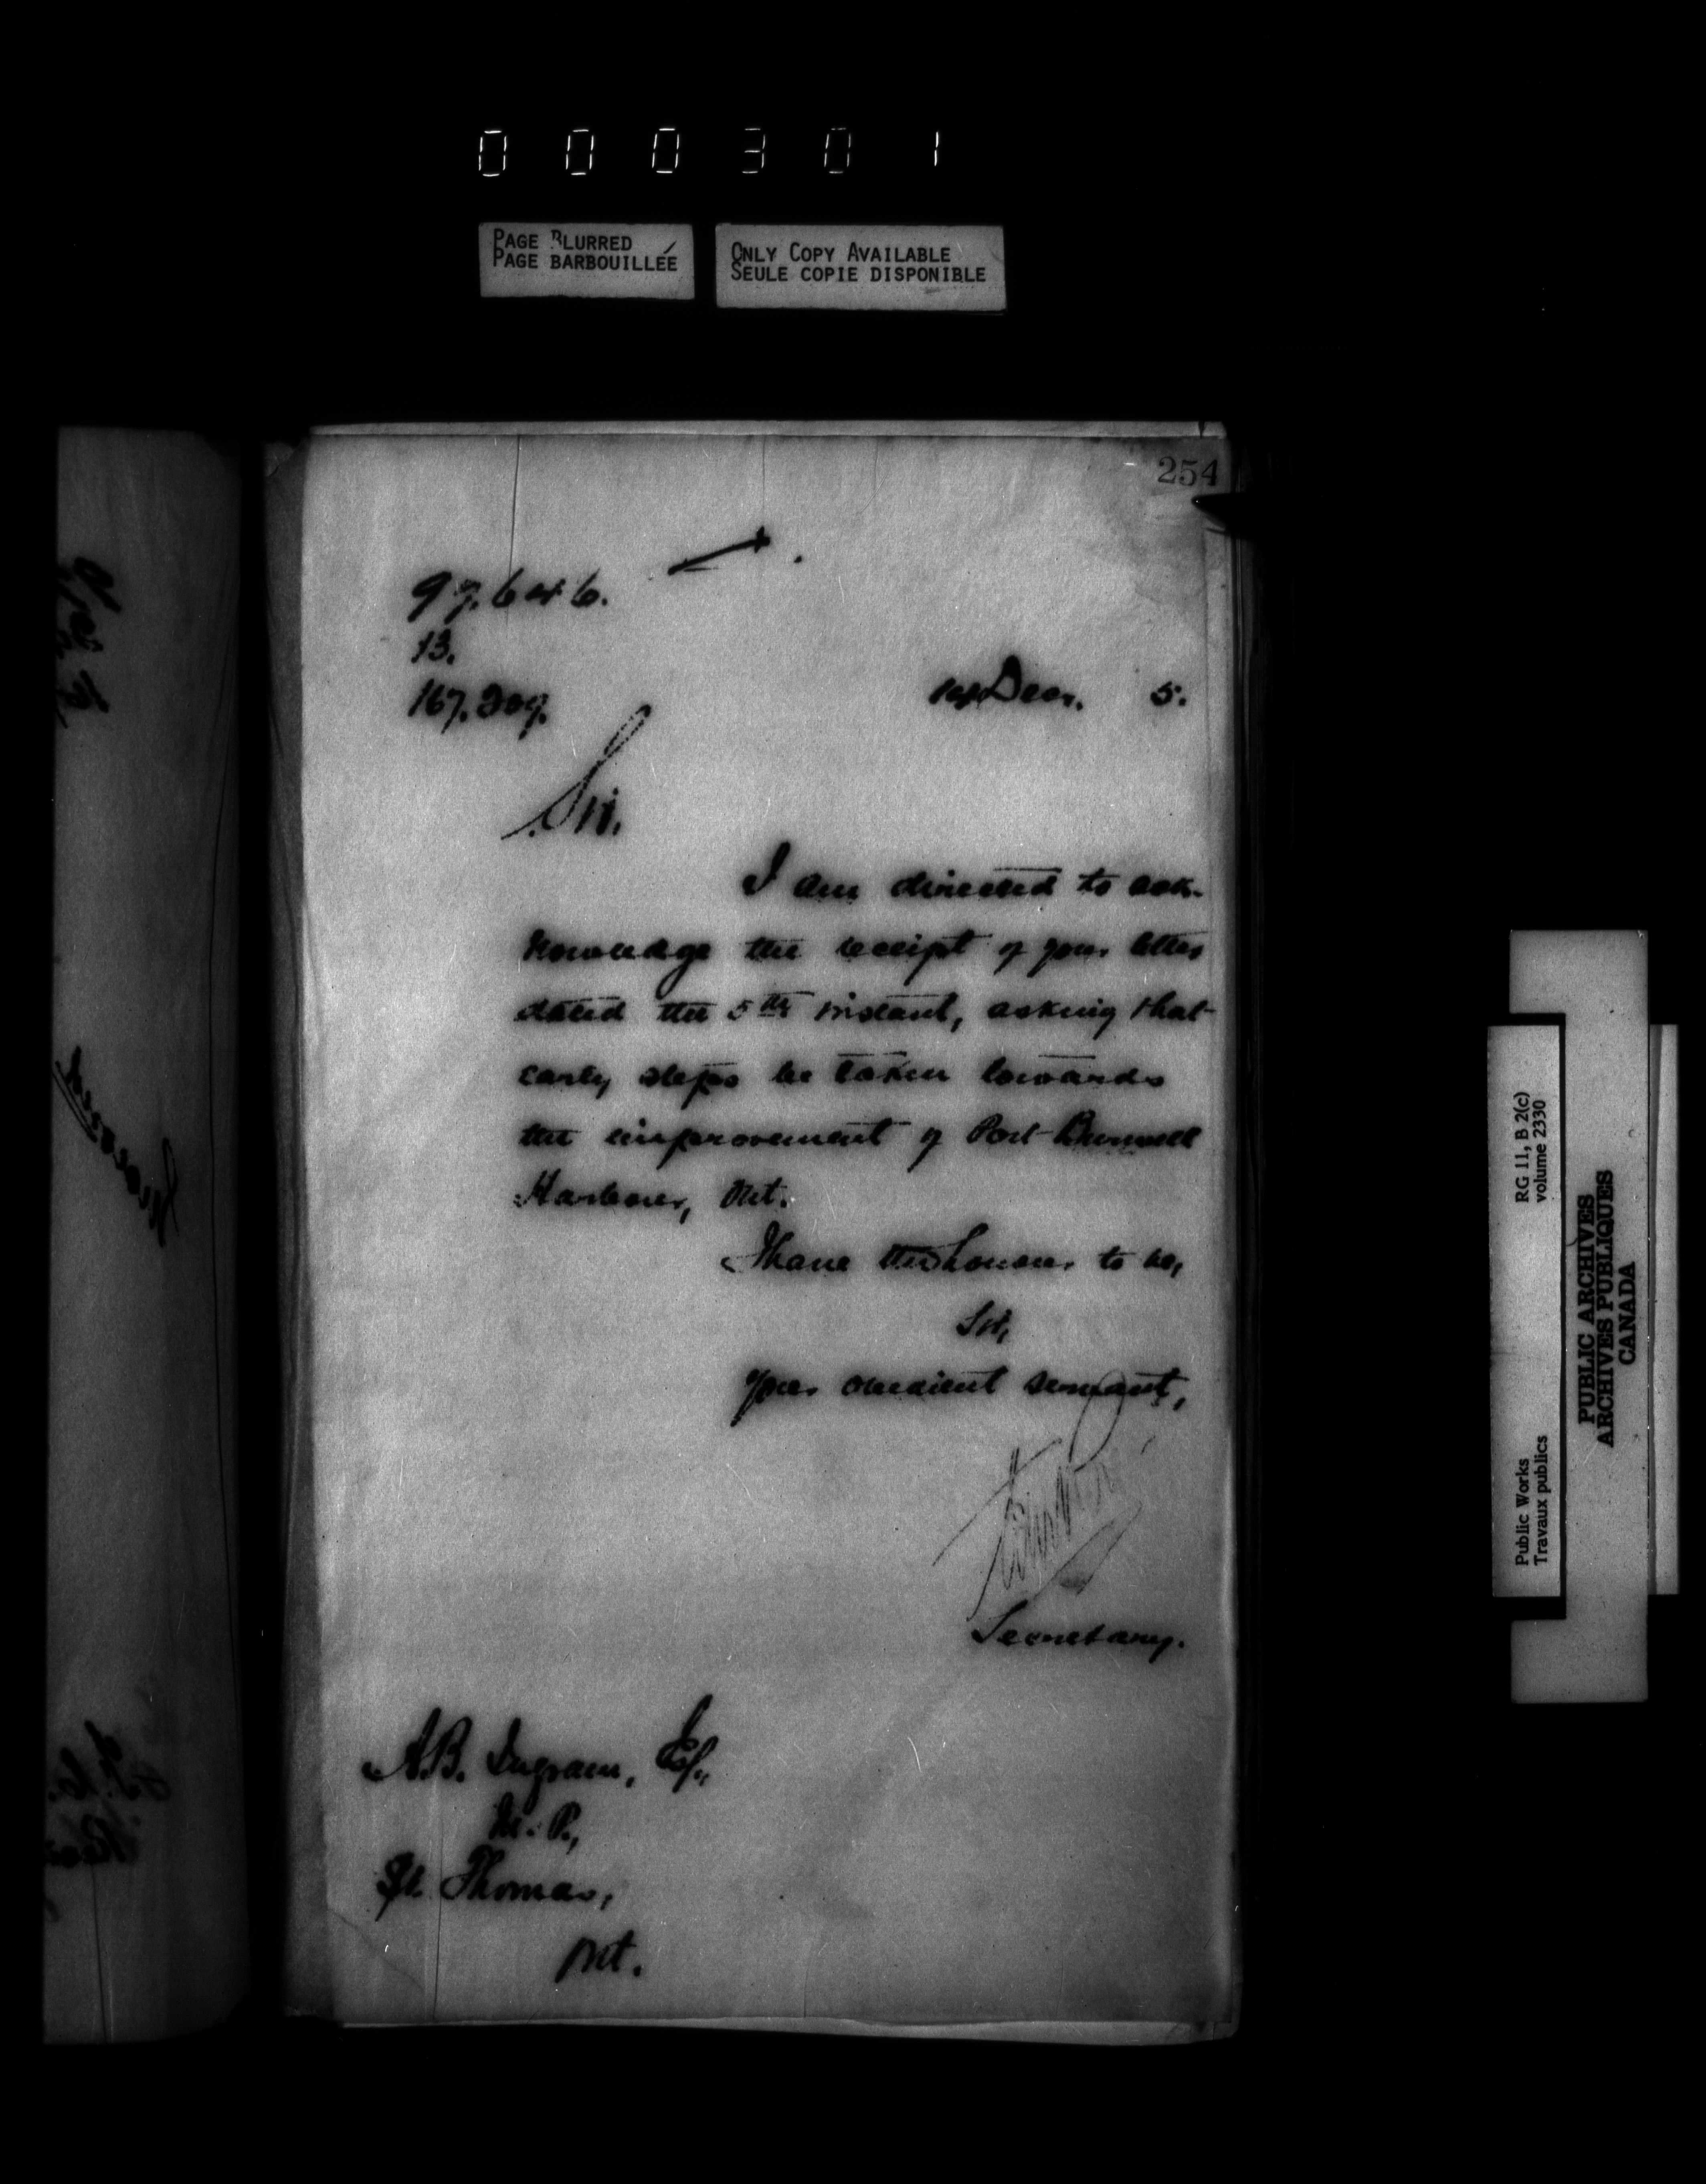 000301
PAGE BLURRED
PAGE BARBOUILLÉE
ONLY COPY AVAILABLE
SEULE COPIE DISPONIBLE
254
13.
Decr. 5.
Sir,
I am directed to ack-
nowledge the receipt of your letter
dated the 5th instant, asking that
early steps be taken towards
the improvement of Port Burwell
Harbour, Ont.
I have the honour to be,
Sir,
Your obedient servant,
Secretary.
A.B. Ingram, Esq.,
M.P.,
St. Thomas,
Ont.
Public Works
Travaux publics
RG 11, B 2(c)
volume 2330
PUBLIC ARCHIVES
ARCHIVES PUBLIQUES
CANADA